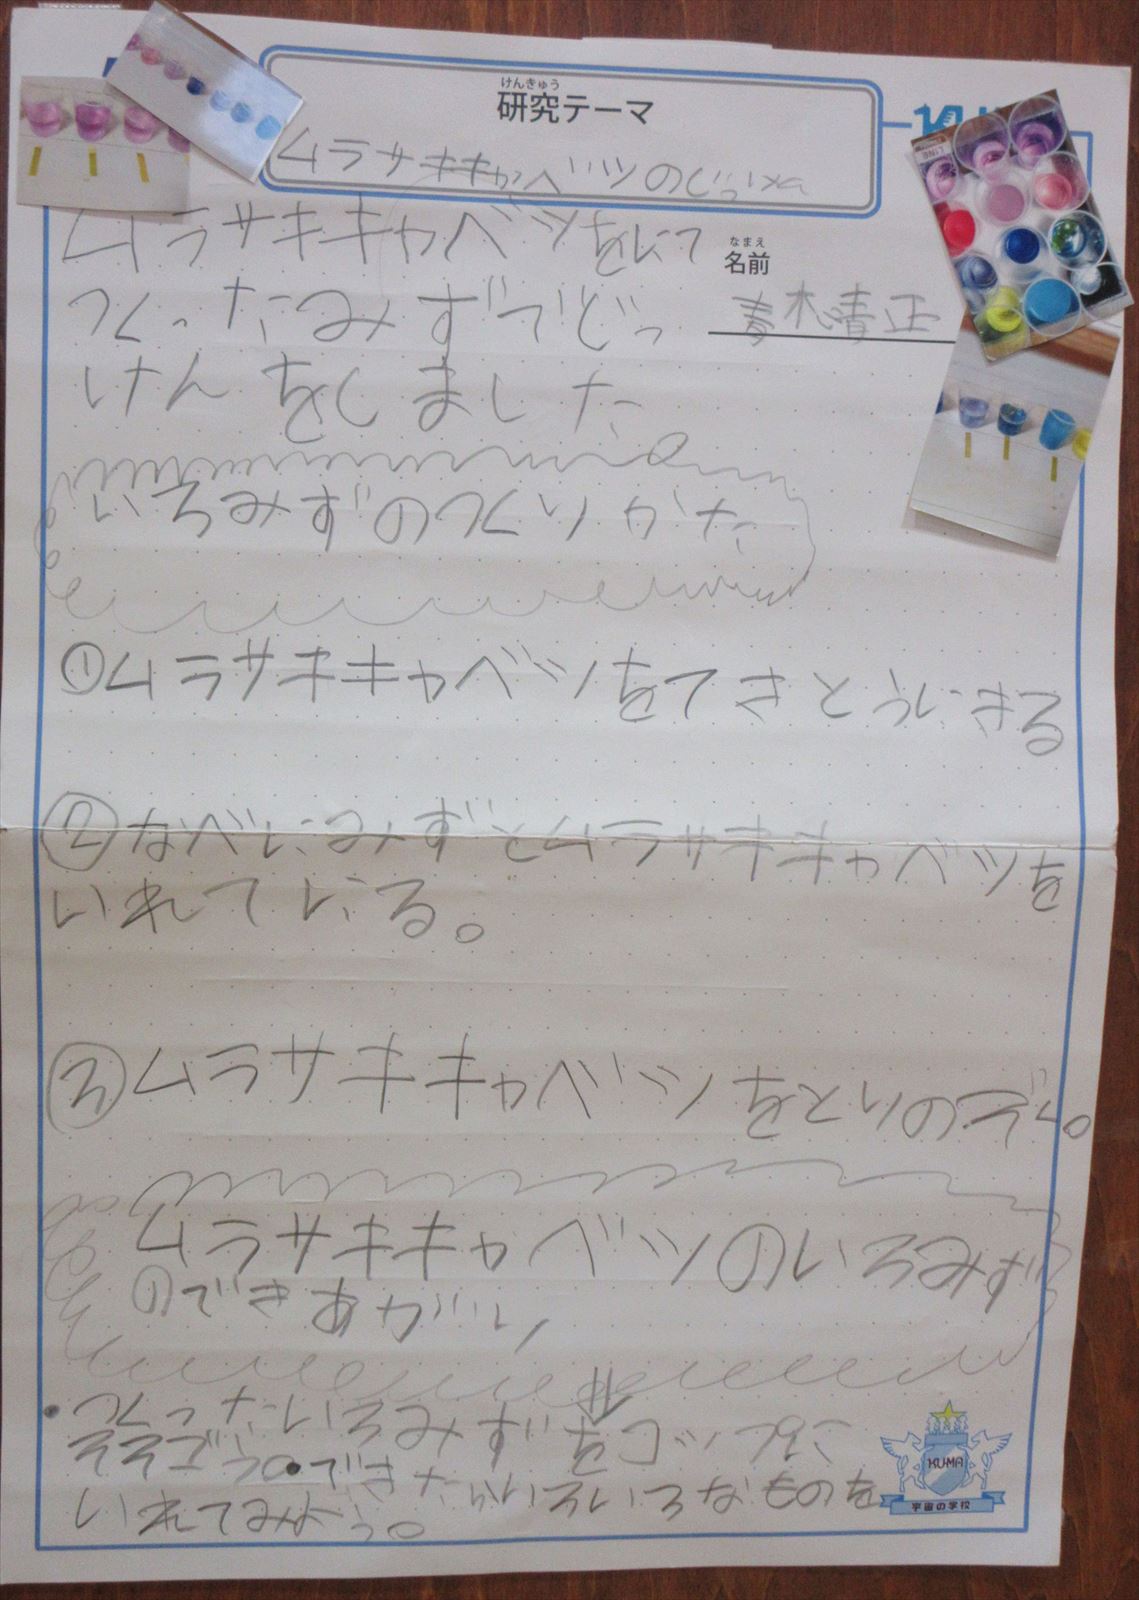 けんきゅう
研究テーマ
ムラサキキャベツのじっけん
なまえ
名前
青木晴正
ムラサキキャベツをにて
つくったみずでじっ
けんをしました
いろみずのつくりかた
①ムラサキキャベツをてきとうにきる
②なべにみずとムラサキキャベツを
いれてにる。
③ムラサキキャベツをとりのぞく。
ムラサキキャベツのいろみず
のできあがり
・つくったいろみずをコップに
そそごう。・できたらいろいろなものを
いれてみよう。
KUMA
宇宙の学校